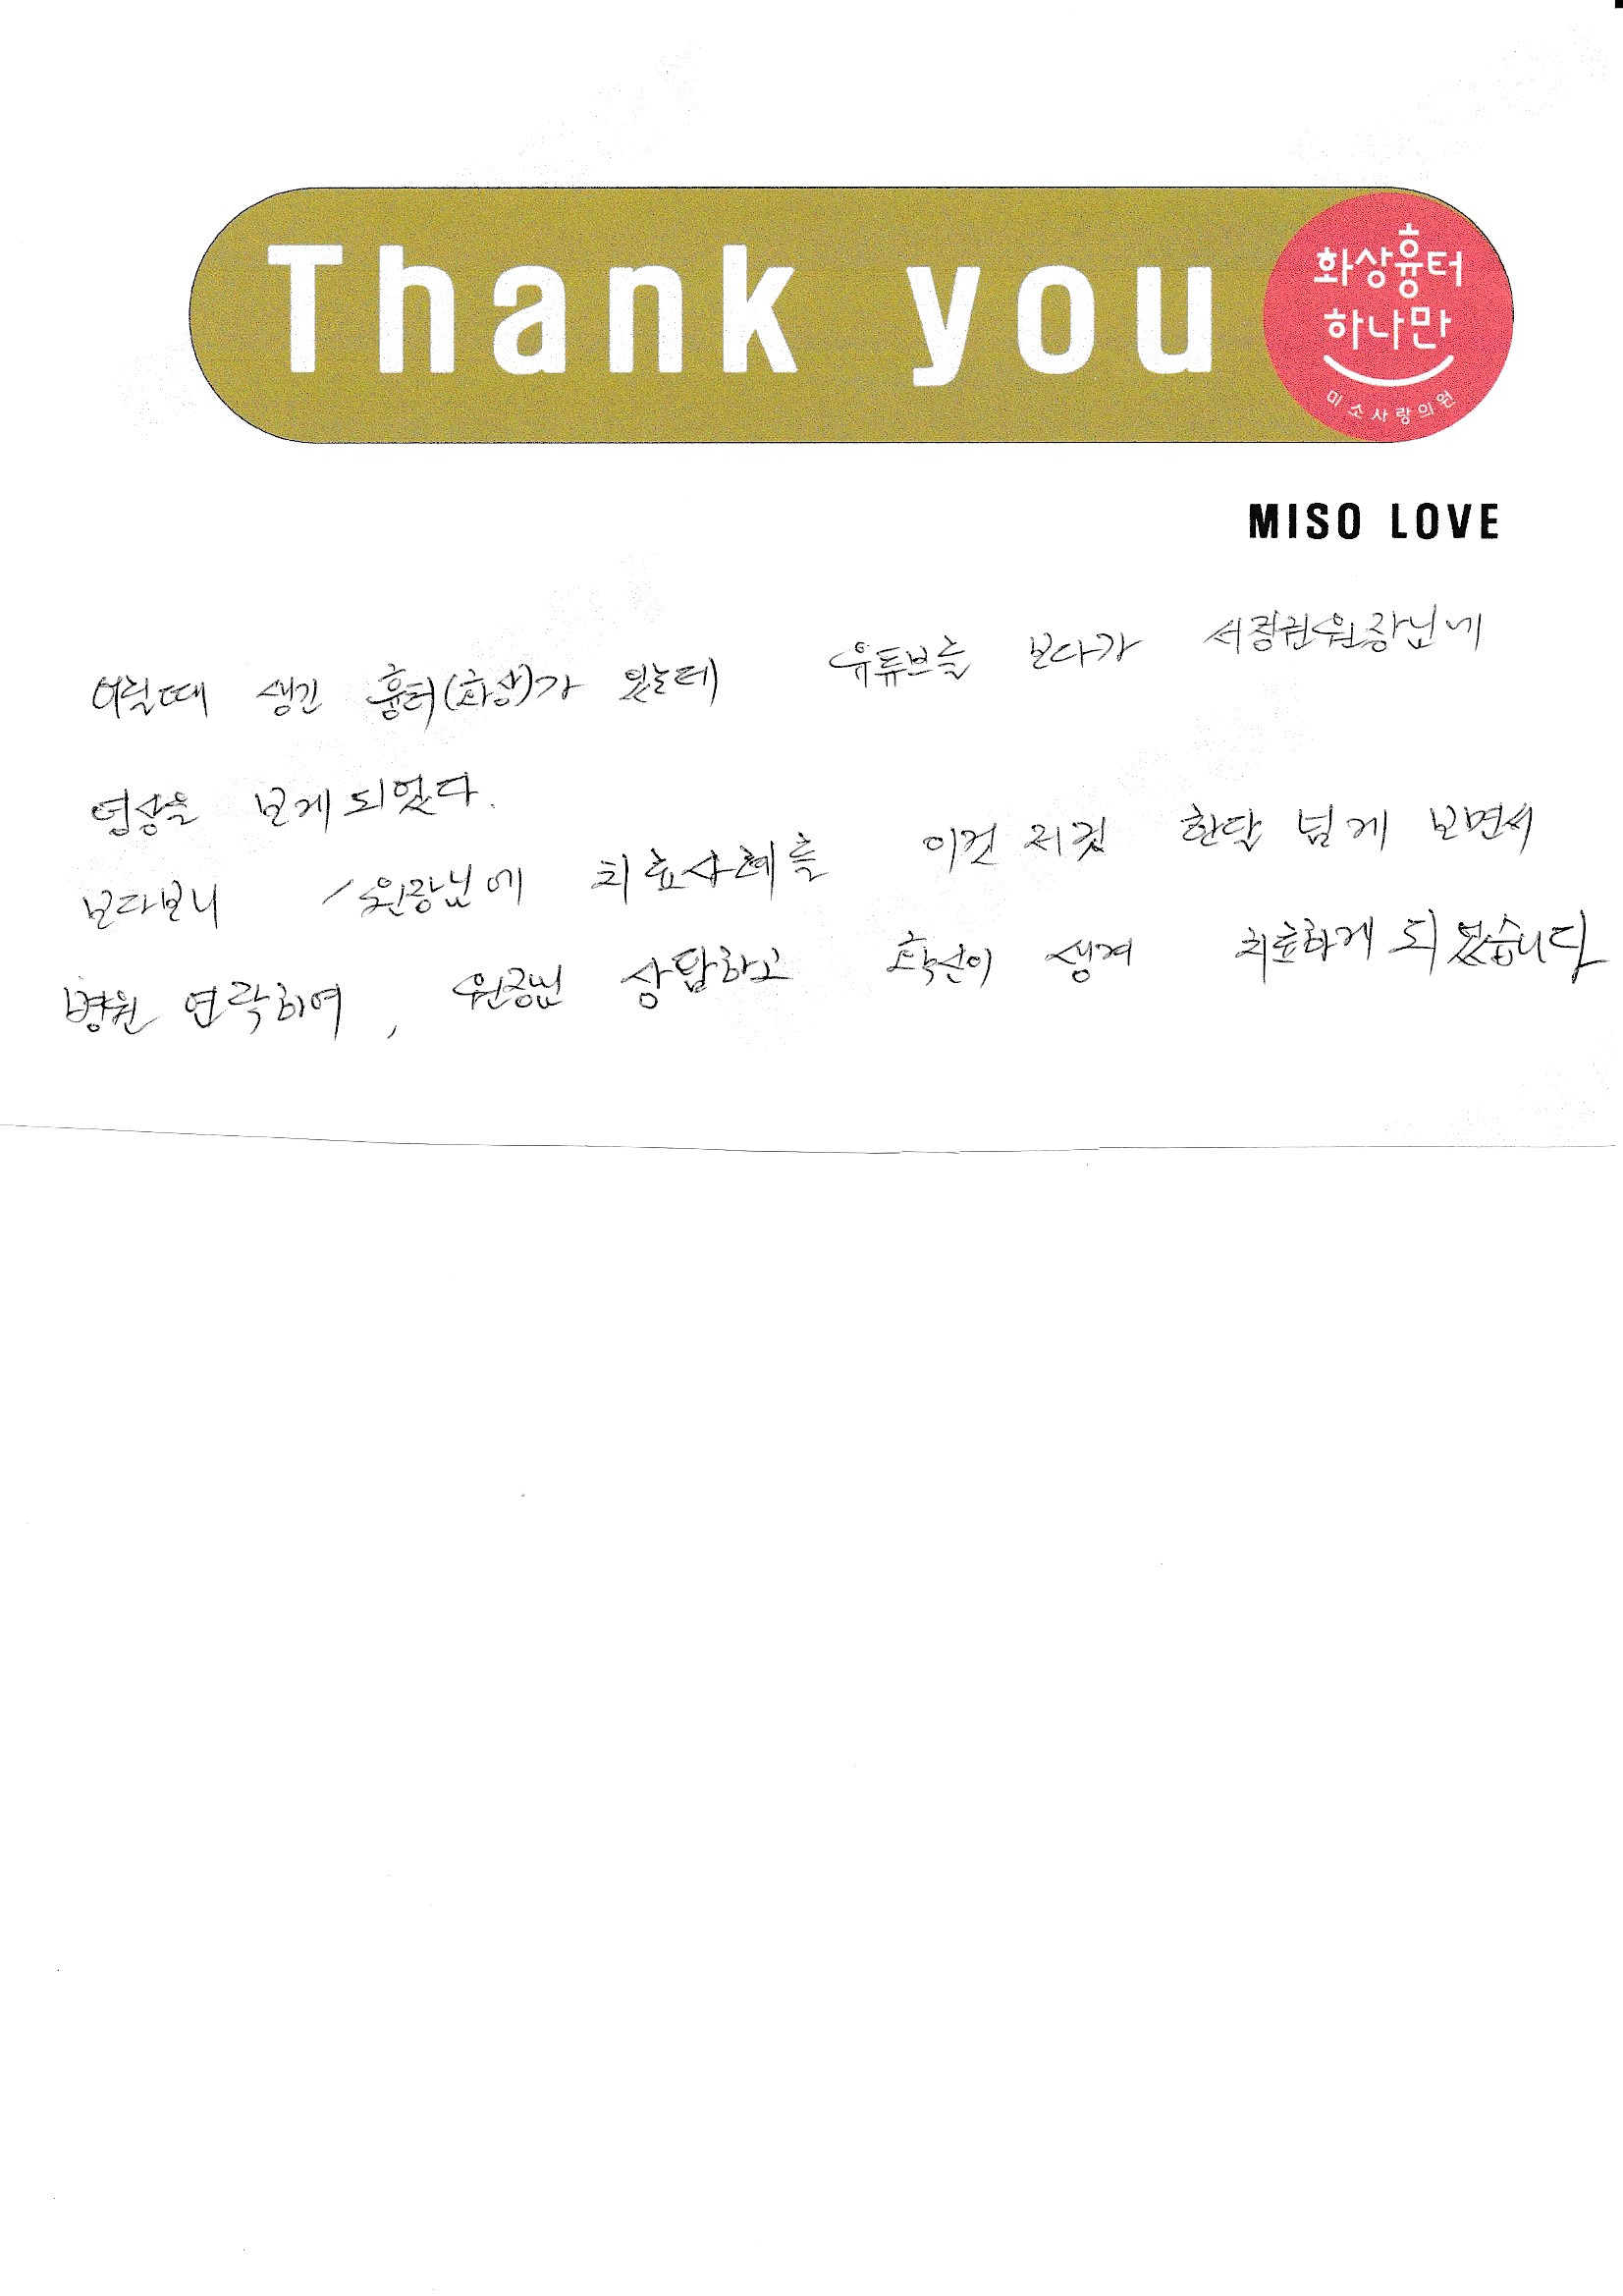 Thank you
화상흉터
하나만
미소사랑의원
MISO LOVE
어릴때 생긴 흉터(화상)가 있는데 유튜브를 보다가 서정권원장님에
영상을 보게되었다.
보다보니 원장님에 치료사례를 이것 저것 한달 넘게 보면서
병원 연락하여, 원장님 상담하고 확신이 생겨 치료하게 되었습니다